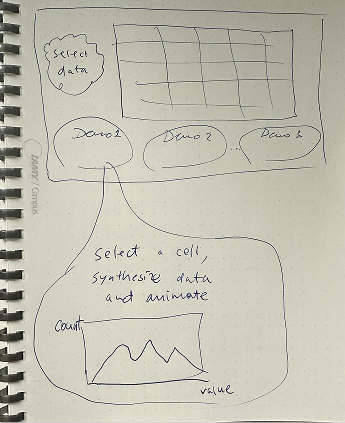 Select
data
Demo 1
Demo 2
...
Select a cell,
synthesize data
and animate
Count
value
LAMY / Campus